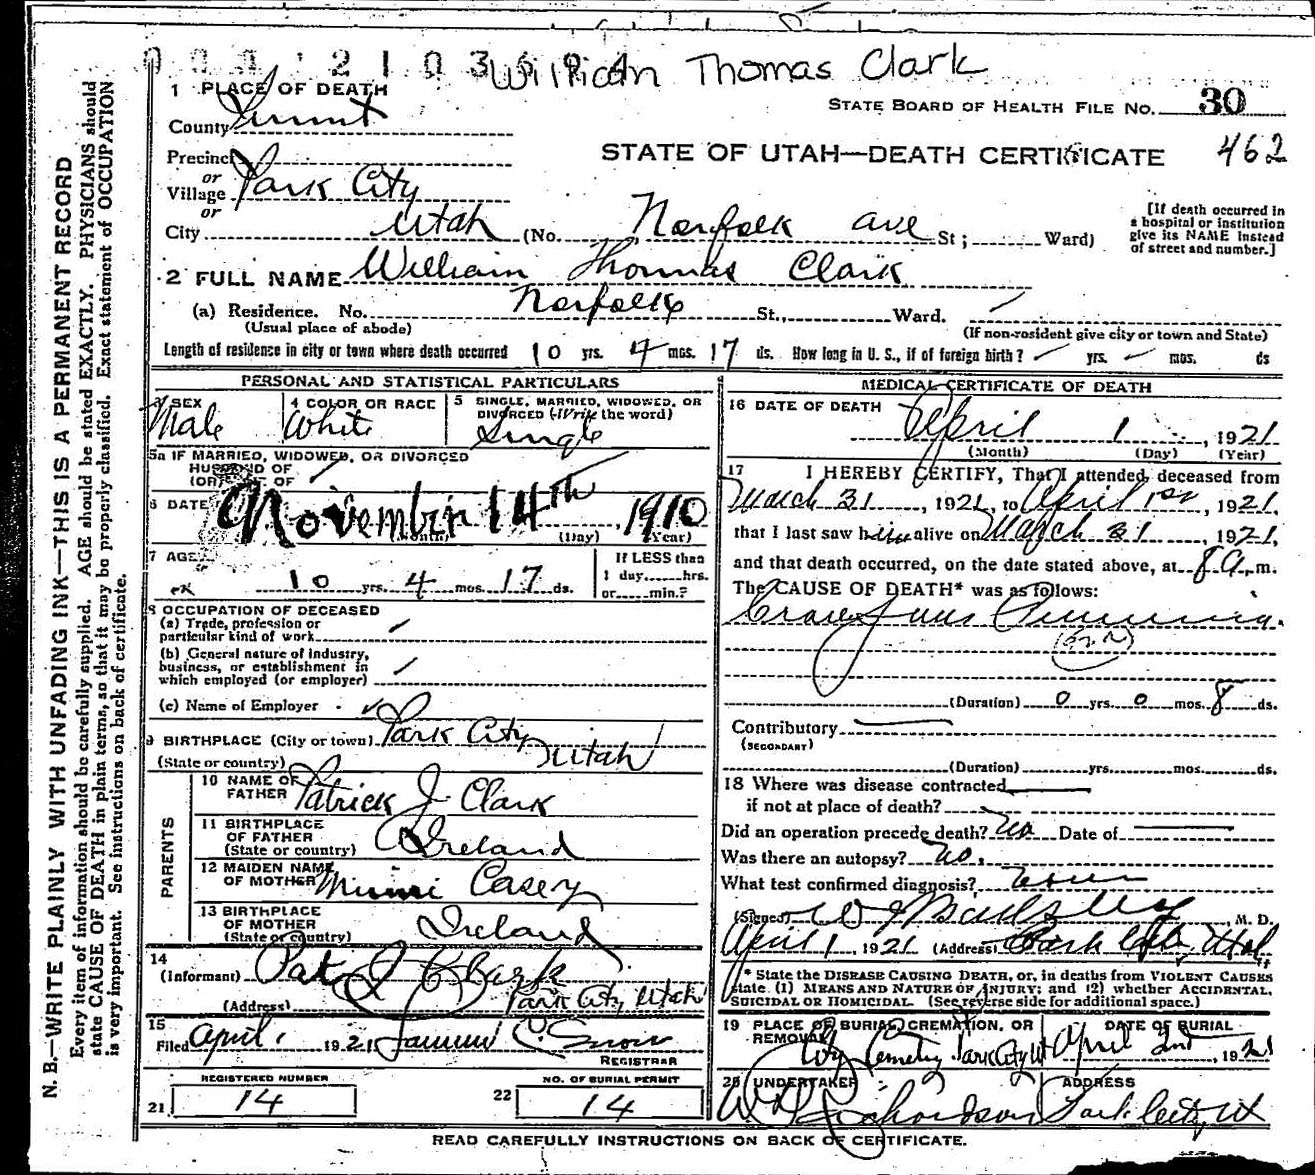 William Thomas Clark
1 PLACE OF DEATH
STATE BOARD OF HEALTH FILE NO. 30
County Summit
STATE OF UTAH—DEATH CERTIFICATE 462
Precinct
or
Village Park City
or
City Utah (No. Norfolk ave St; Ward)
[If death occurred in
a hospital or institution
give its NAME instead
of street and number.]
2 FULL NAME William Thomas Clark
(a) Residence. No. Norfolk St., Ward.
(Usual place of abode) (If non-resident give city or town and State)
Length of residence in city or town where death occurred 10 yrs. 4 mos. 17 ds. How long in U. S., if of foreign birth? yrs. mos. ds
PERSONAL AND STATISTICAL PARTICULARS
3 SEX 4 COLOR OR RACE 5 SINGLE, MARRIED, WIDOWED, OR
DIVORCED (Write the word)
Male White Single
5a IF MARRIED, WIDOWED, OR DIVORCED
HUSBAND OF
(OR) WIFE OF
6 DATE November 14th 1910
(Month) (Day) (Year)
7 AGE 10 yrs. 4 mos. 17 ds.
If LESS than
1 day......hrs.
or......min.?
8 OCCUPATION OF DECEASED
(a) Trade, profession or
particular kind of work
(b) General nature of industry,
business, or establishment in
which employed (or employer)
(c) Name of Employer
9 BIRTHPLACE (City or town) Park City
(State or country) Utah
PARENTS
10 NAME OF
FATHER Patrick J Clark
11 BIRTHPLACE
OF FATHER
(State or country) Ireland
12 MAIDEN NAME
OF MOTHER Casey
13 BIRTHPLACE
OF MOTHER
(State or country) Ireland
14
(Informant) Pat J Clark
(Address) Park City Utah
15
Filed April 1 1921 Snow
REGISTRAR
REGISTERED NUMBER
21 14
NO. OF BURIAL PERMIT
22 14
MEDICAL CERTIFICATE OF DEATH
16 DATE OF DEATH
April 1, 1921
(Month) (Day) (Year)
17 I HEREBY CERTIFY, That I attended deceased from
March 31, 1921, to April 1st, 1921,
that I last saw him alive on March 31, 1921,
and that death occurred, on the date stated above, at 8 A.m.
The CAUSE OF DEATH* was as follows:
(Duration) 0 yrs. 0 mos. 8 ds.
Contributory
(SECONDARY)
(Duration) yrs. mos. ds.
18 Where was disease contracted
if not at place of death?
Did an operation precede death? No Date of
Was there an autopsy? No.
What test confirmed diagnosis?
(Signed) M. D.
April 1, 1921 (Address) Park City, Utah
* State the DISEASE CAUSING DEATH, or, in deaths from VIOLENT CAUSES
state (1) MEANS AND NATURE OF INJURY; and (2) whether ACCIDENTAL,
SUICIDAL OR HOMICIDAL. (See reverse side for additional space.)
19 PLACE OF BURIAL, CREMATION, OR
REMOVAL
DATE OF BURIAL
City Cemetery Park City Ut April 2nd, 1921
20 UNDERTAKER ADDRESS
Richardson Park City Ut
READ CAREFULLY INSTRUCTIONS ON BACK OF CERTIFICATE.
N. B.—WRITE PLAINLY WITH UNFADING INK—THIS IS A PERMANENT RECORD
Every item of information should be carefully supplied. AGE should be stated EXACTLY. PHYSICIANS should
state CAUSE OF DEATH in plain terms, so that it may be properly classified. Exact statement of OCCUPATION
is very important. See instructions on back of certificate.